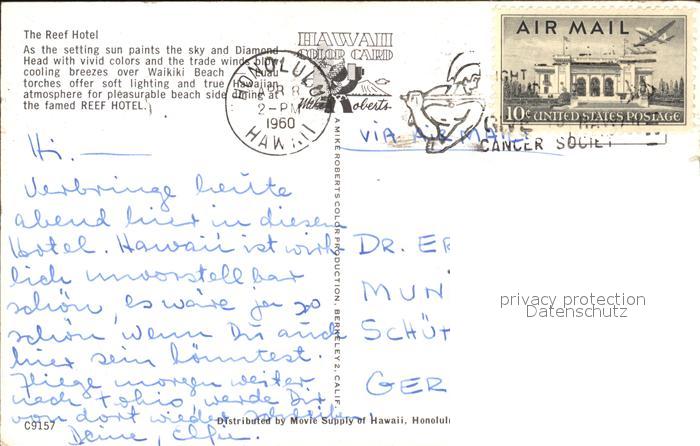 The Reef Hotel
As the setting sun paints the sky and Diamond
Head with vivid colors and the trade winds blow
cooling breezes over Waikiki Beach
torches offer soft lighting and true Hawaiian
atmosphere for pleasurable beach side at
the famed REEF HOTEL.
HAWAII
COLOR CARD
Mike Roberts
HONOLULU
8
2-PM
1960
HAWAII
AIR MAIL
10¢ UNITED STATES POSTAGE
CANCER SOCIETY
VIA AIR MAIL
Hi.
Verbringe heute
abend hier in diesem
Hotel. Hawaii ist wirk
lich unvorstellbar
schön, es wäre ja so
schön wenn Du auch
hier sein könntest.
Fliege morgen weiter
nach Tokio werde Dir
von dort wieder schreiben.
Deine, Elfie.
A MIKE ROBERTS COLOR PRODUCTION, BERKELEY 2, CALIF.
DR. ER
MUN
SCHÜT
GER
privacy protection
Datenschutz
C9157
Distributed by Movie Supply of Hawaii, Honolul